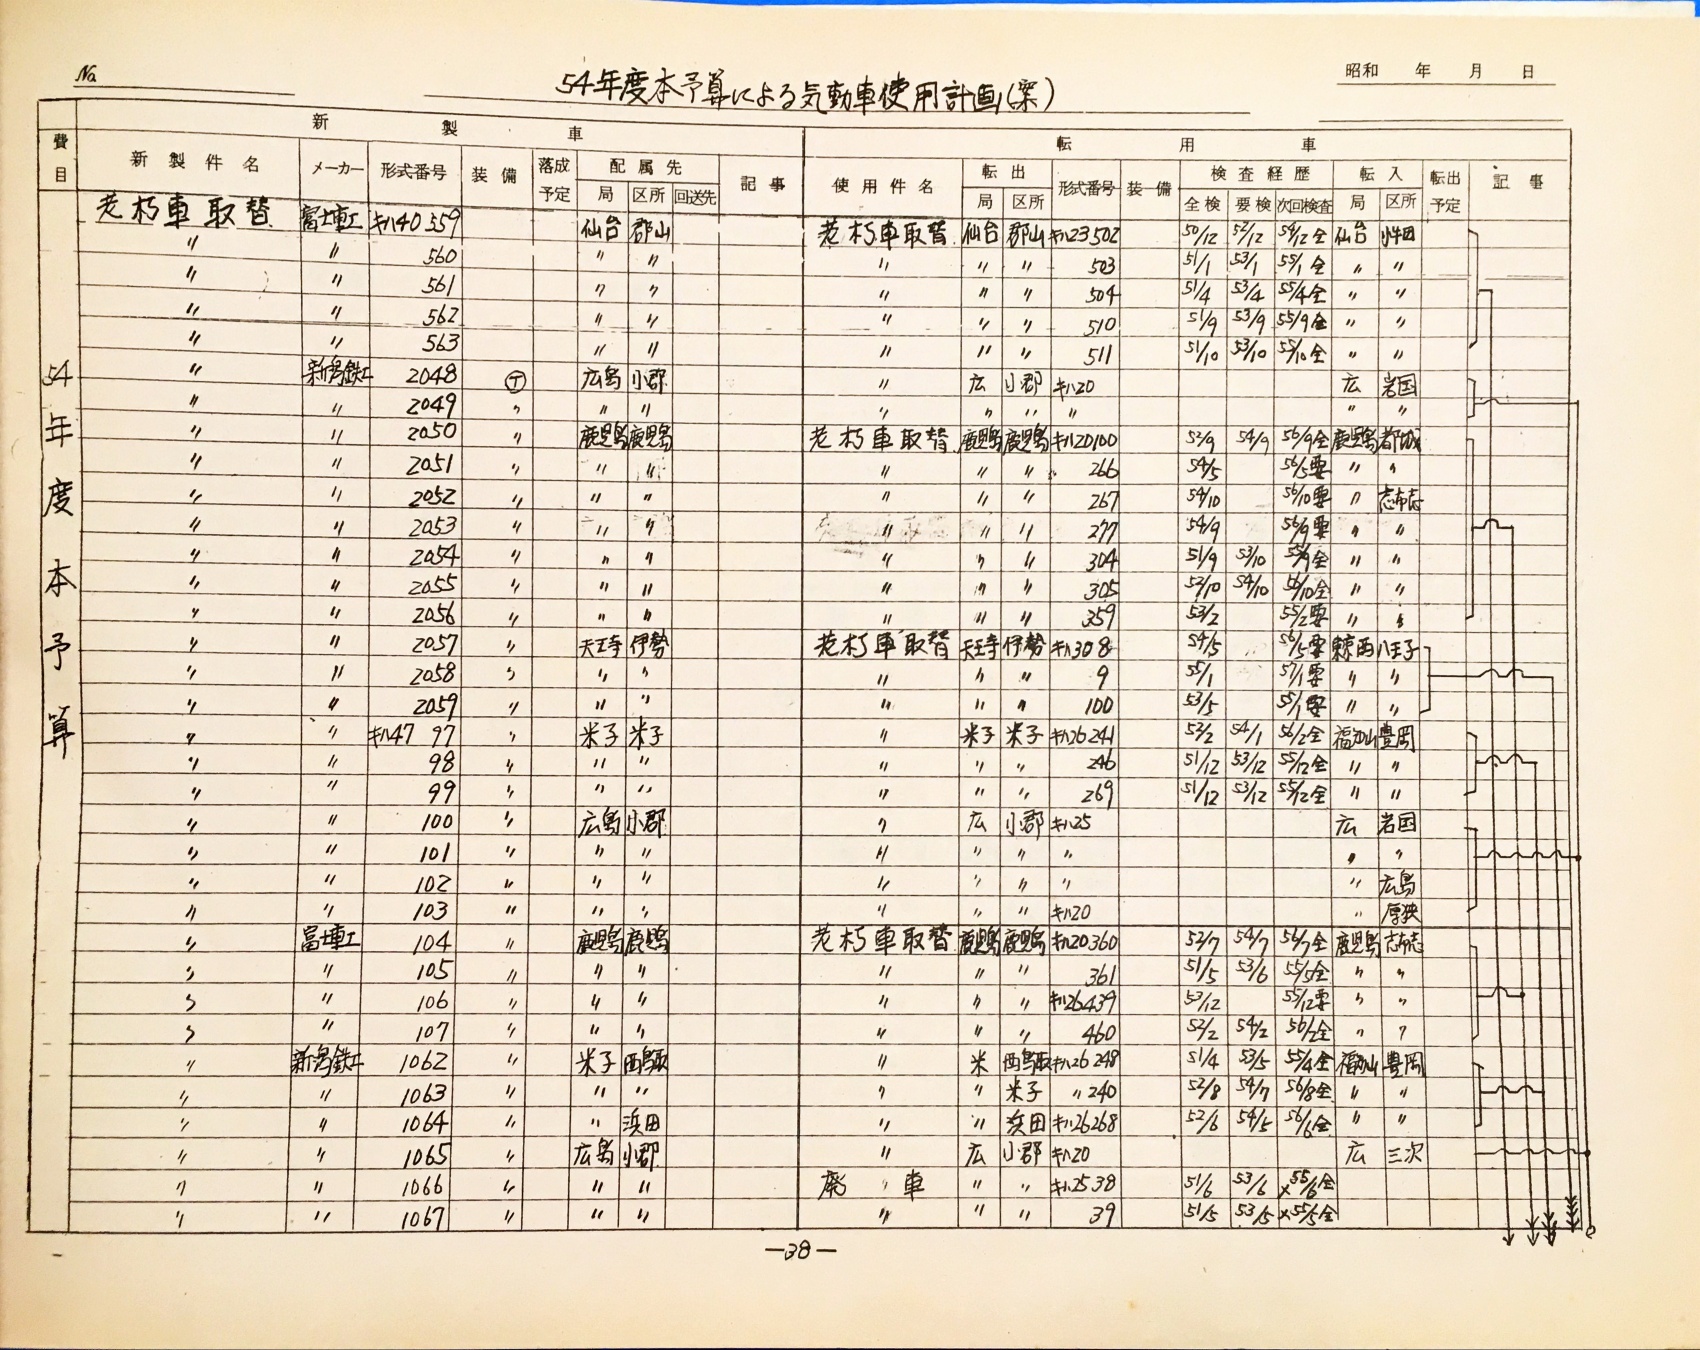 No.
54年度本予算による気動車使用計画(案)
昭和 年 月 日
費目 新製車 転用車
新製件名 メーカー 形式番号 装備 落成予定 配属先 記事 使用件名 転出 形式番号 装備 検査経歴 転入 転出予定 記事
局 区所 回送先 局 区所 全検 要検 次回検査 局 区所
54年度本予算
老朽車取替 富士重工 キハ40 559 仙台 郡山 老朽車取替 仙台 郡山 キハ23 502 50/12 52/12 54/12全 仙台 小牛田
〃 〃 560 〃 〃 〃 〃 〃 503 51/1 53/1 55/1全 〃 〃
〃 〃 561 〃 〃 〃 〃 〃 504 51/4 53/4 55/4全 〃 〃
〃 〃 562 〃 〃 〃 〃 〃 510 51/9 53/9 55/9全 〃 〃
〃 〃 563 〃 〃 〃 〃 〃 511 51/10 53/10 55/10全 〃 〃
〃 新潟鉄工 2048 Ⓣ 広島 小郡 〃 広 小郡 キハ20 広 岩国
〃 〃 2049 〃 〃 〃 〃 〃 〃 〃 〃 〃
〃 〃 2050 〃 鹿児島 鹿児島 老朽車取替 鹿児島 鹿児島 キハ20 100 52/9 54/9 56/9全 鹿児島 都城
〃 〃 2051 〃 〃 〃 〃 〃 〃 266 54/5 56/5要 〃 〃
〃 〃 2052 〃 〃 〃 〃 〃 〃 267 54/10 56/10要 〃 志布志
〃 〃 2053 〃 〃 〃 〃 〃 〃 277 54/9 56/9要 〃 〃
〃 〃 2054 〃 〃 〃 〃 〃 〃 304 51/9 53/10 55/9全 〃 〃
〃 〃 2055 〃 〃 〃 〃 〃 〃 305 52/10 54/10 56/10全 〃 〃
〃 〃 2056 〃 〃 〃 〃 〃 〃 359 53/2 55/2要 〃 〃
〃 〃 2057 〃 天王寺 伊勢 老朽車取替 天王寺 伊勢 キハ30 8 54/5 56/5要 東京西 八王子
〃 〃 2058 〃 〃 〃 〃 〃 〃 9 55/1 57/1要 〃 〃
〃 〃 2059 〃 〃 〃 〃 〃 〃 100 53/5 55/1要 〃 〃
〃 〃 キハ47 97 〃 米子 米子 〃 米子 米子 キハ26 241 52/2 54/1 56/2全 福知山 豊岡
〃 〃 98 〃 〃 〃 〃 〃 〃 246 51/12 53/12 55/12全 〃 〃
〃 〃 99 〃 〃 〃 〃 〃 〃 269 51/12 53/12 55/12全 〃 〃
〃 〃 100 〃 広島 小郡 〃 広 小郡 キハ25 広 岩国
〃 〃 101 〃 〃 〃 〃 〃 〃 〃 〃 〃
〃 〃 102 〃 〃 〃 〃 〃 〃 〃 〃 広島
〃 〃 103 〃 〃 〃 〃 〃 〃 キハ20 〃 厚狭
〃 富士重工 104 〃 鹿児島 鹿児島 老朽車取替 鹿児島 鹿児島 キハ20 360 52/7 54/7 56/7全 鹿児島 志布志
〃 〃 105 〃 〃 〃 〃 〃 〃 361 51/5 53/6 55/5全 〃 〃
〃 〃 106 〃 〃 〃 〃 〃 〃 キハ26 439 53/12 55/12要 〃 〃
〃 〃 107 〃 〃 〃 〃 〃 〃 460 52/2 54/2 56/2全 〃 〃
〃 新潟鉄工 1062 〃 米子 西鳥取 〃 米 西鳥取 キハ26 248 51/4 53/5 55/4全 福知山 豊岡
〃 〃 1063 〃 〃 〃 〃 〃 米子 〃 240 52/8 54/7 56/8全 〃 〃
〃 〃 1064 〃 〃 浜田 〃 〃 浜田 キハ26 268 52/6 54/5 56/6全 〃 〃
〃 〃 1065 〃 広島 小郡 〃 広 小郡 キハ20 広 三次
〃 〃 1066 〃 〃 〃 廃車 〃 〃 キハ25 38 51/6 53/6 ×55/6全
〃 〃 1067 〃 〃 〃 〃 〃 〃 39 51/5 53/5 ×55/5全
—38—